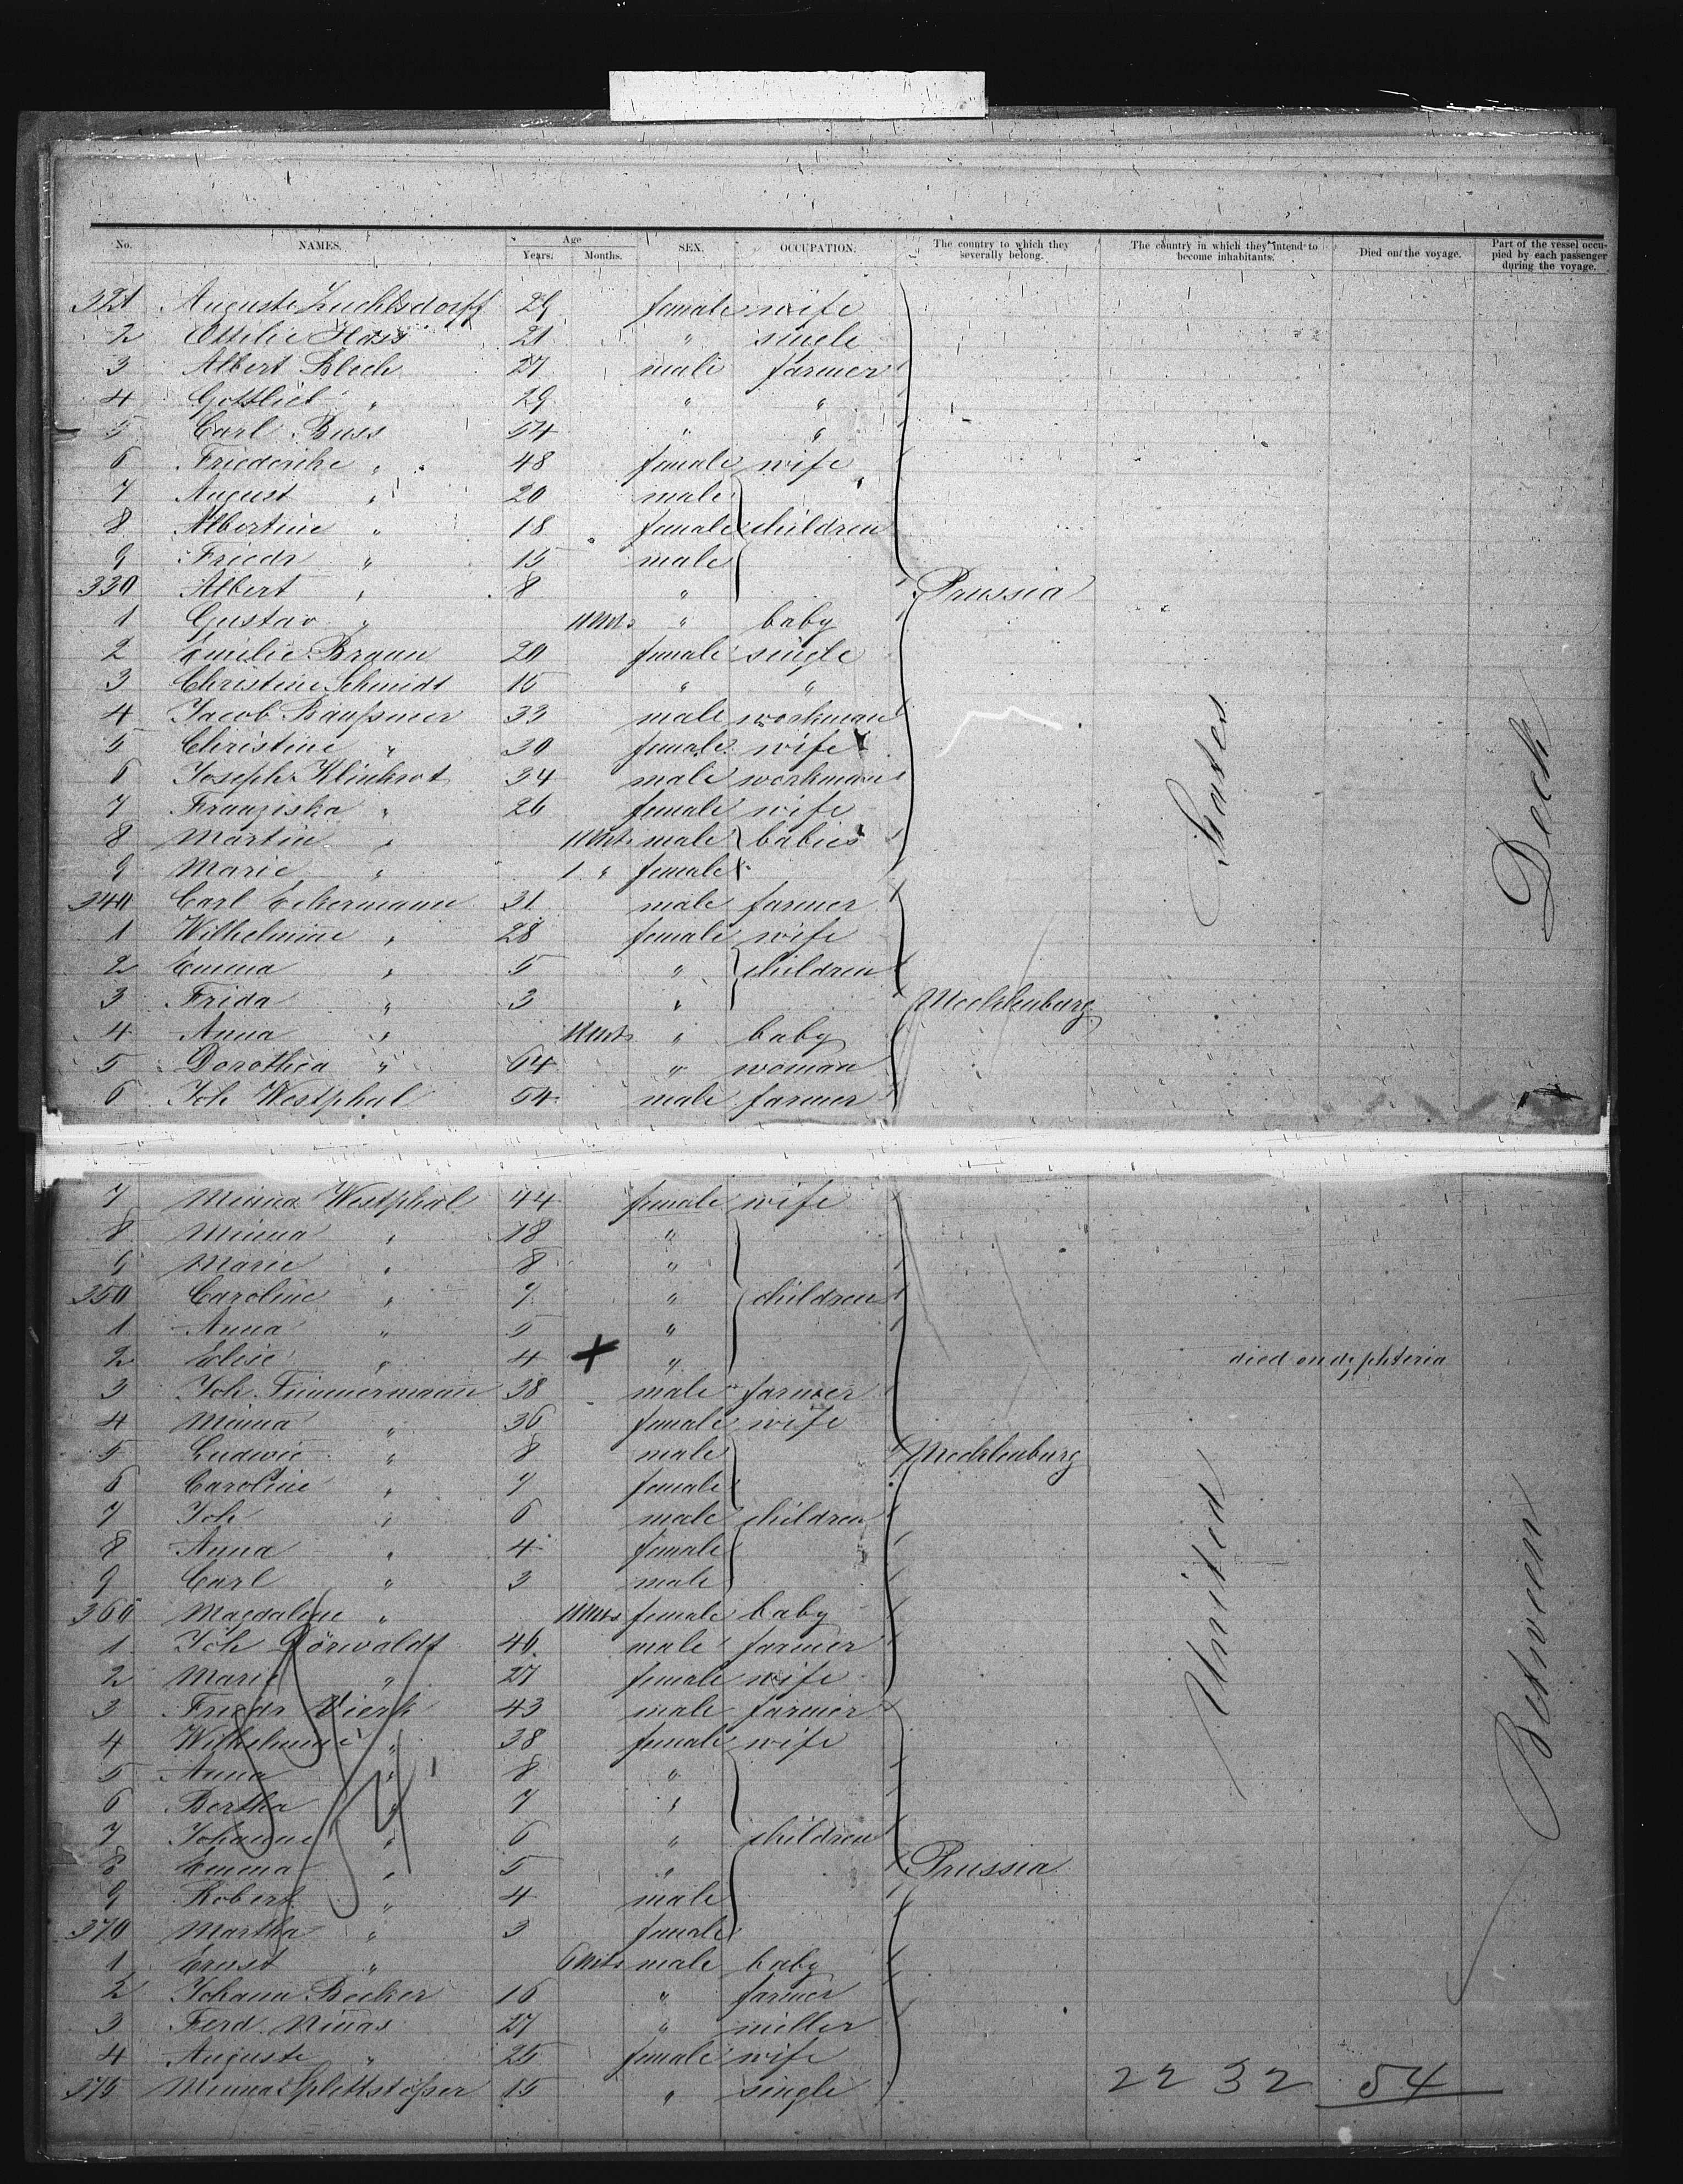 No. NAMES. Age Years. Months. SEX. OCCUPATION. The country to which they severally belong. The country in which they intend to become inhabitants. Died on the voyage. Part of the vessel occupied by each passenger during the voyage.
321 Auguste Luchtsdorff 29 female wife
2 Ottilie Hass 21 " single
3 Albert Blech 27 male farmer
4 Gottlieb " 29 " "
5 Carl Buss 54 " "
6 Friederike " 48 female wife
7 August " 20 male
8 Albertine " 18 female children
9 Friedr " 15 male
330 Albert " 8 " Prussia
1 Gustav " 11 Mts " baby
2 Emilie Braun 20 female single
3 Christine Schmidt 15 " "
4 Jacob 33 male workman
5 Christine " 30 female wife
6 Joseph Klinkrot 34 male workman
7 Franziska " 26 female wife
8 Martin " 11 Mts male babies
9 Marie " 1 " female
340 Carl Eckermann 31 male farmer
1 Wilhelmine " 28 female wife
2 Emma " 5 " children
3 Frida " 3 " Mecklenburg
4 Anna " 11 Mts " baby
5 Dorothea " 64 " woman
6 Joh Westphal 54 male farmer
7 Minna Westphal 44 female wife
8 Minna " 18 "
9 Marie " 8 "
350 Caroline " 7 " children
1 Anna " 5 "
2 Elise " 4 + " died on diphteria
3 Joh. Timmermann 38 male farmer
4 Minna " 36 female wife
5 Ludwig " 8 male Mecklenburg
6 Caroline " 7 female
7 Joh " 6 male children
8 Anna " 4 female
9 Carl " 3 male
360 Magdalene " 11 Mts female baby
1 Joh Dörwaldt 46 male farmer
2 Marie " 27 female wife
3 Friedr Vierk 43 male farmer
4 Wilhelmine " 38 female wife
5 Anna " 8 "
6 Bertha " 7 "
7 Johanne " 6 " children
8 Emma " 5 " Prussia
9 Robert " 4 male
370 Martha " 3 female
1 Ernst " 6 Mts male baby
2 Johann Becker 16 " farmer
3 Ferd. Ninas 27 " miller
4 Auguste " 25 female wife
375 Minna Splettstößer 15 " single
United States
Between Deck
54
22 32 54